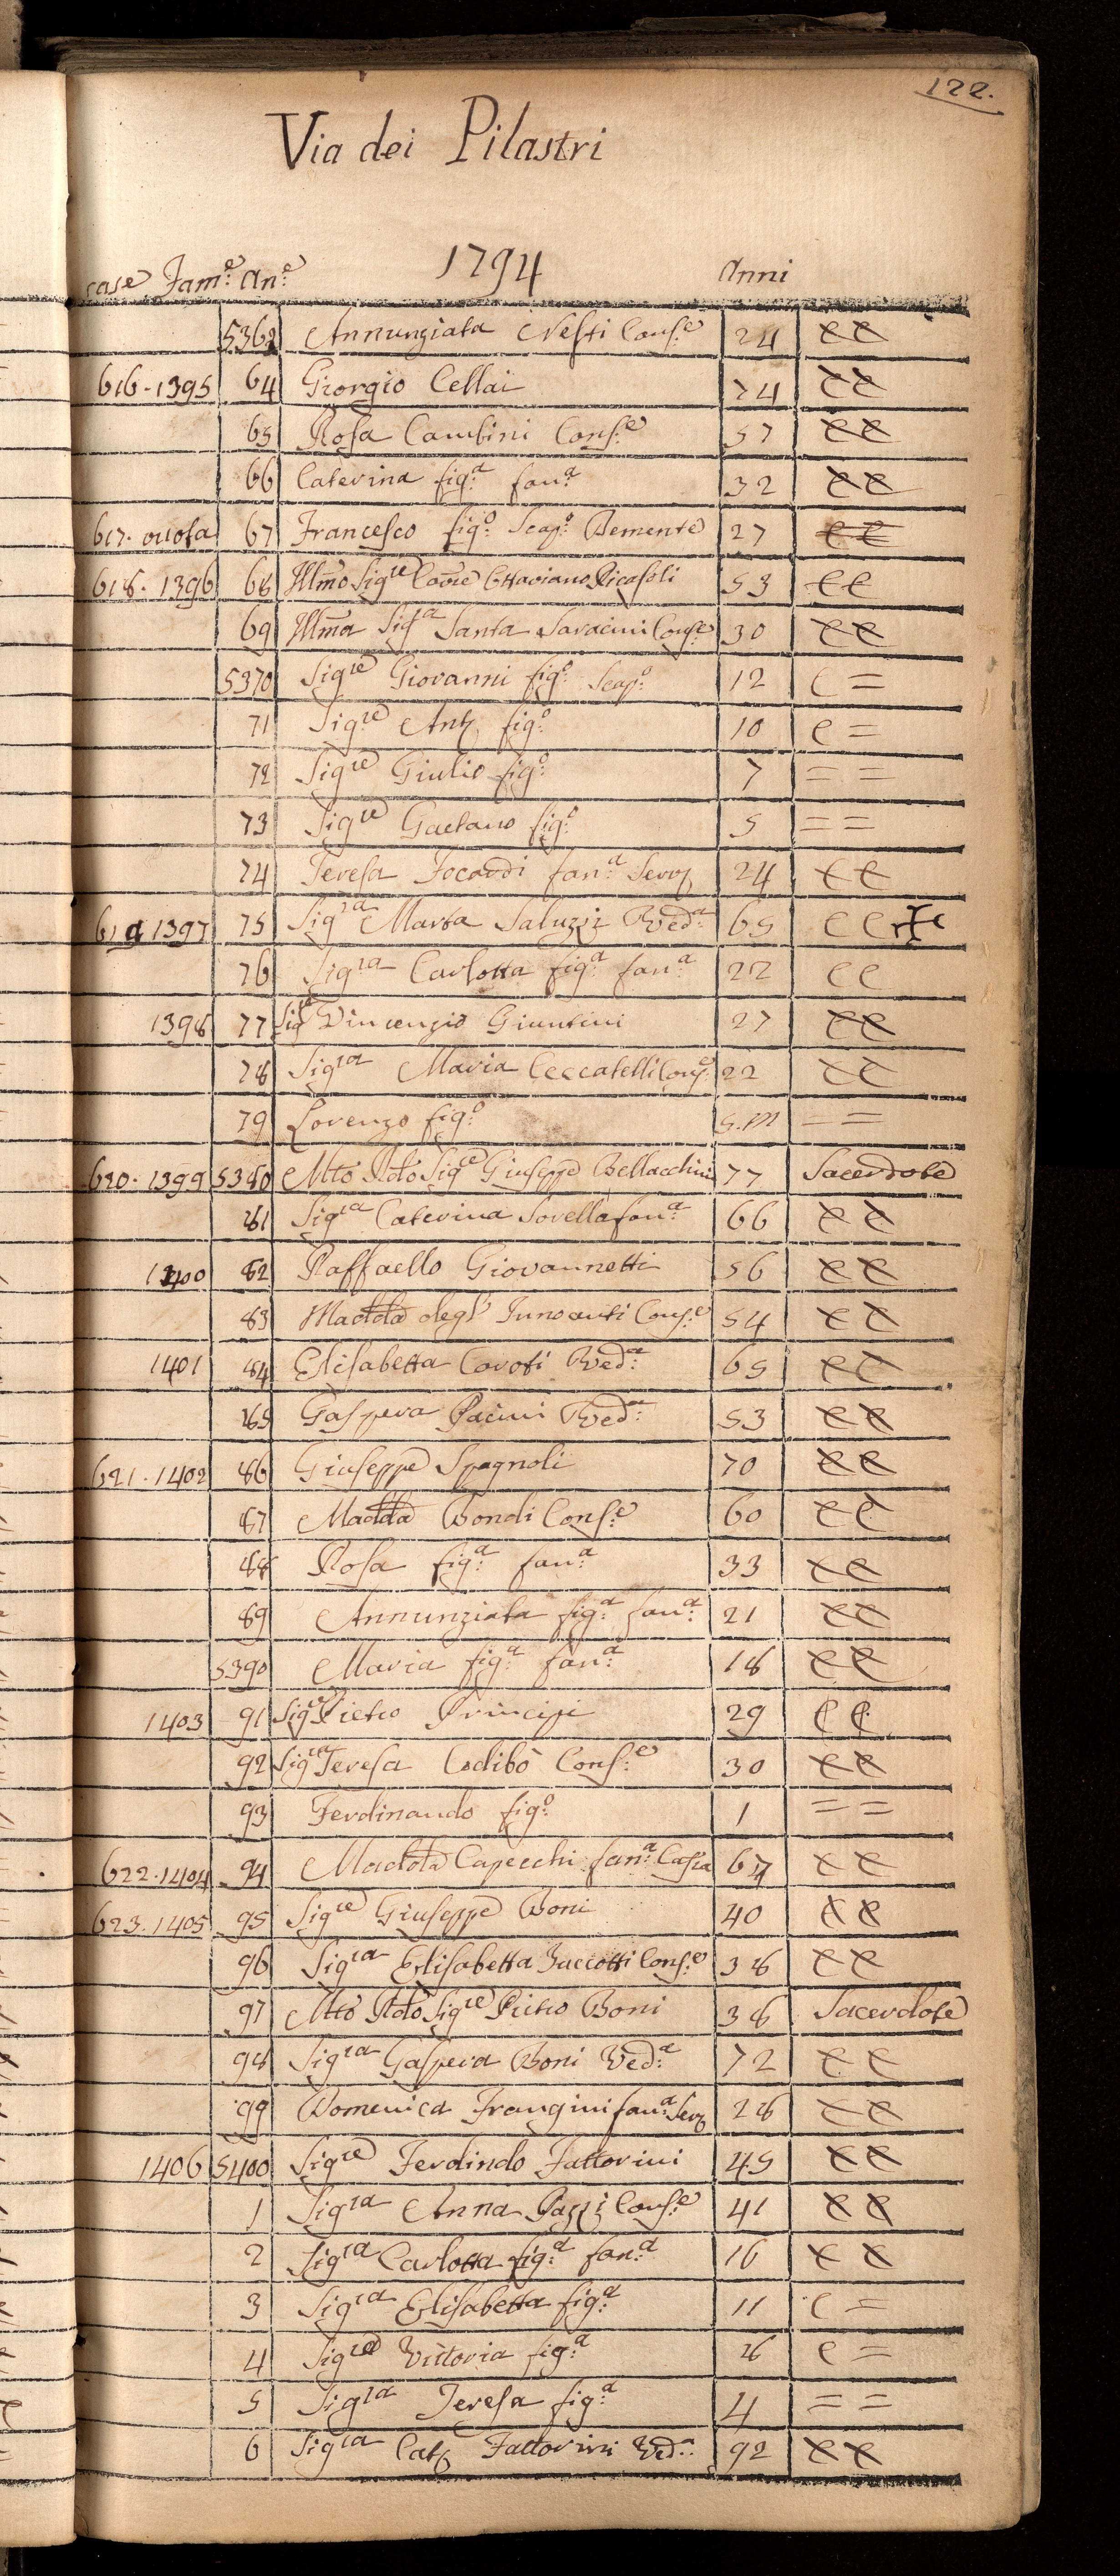 122.
Via dei Pilastri
case Fam.e An.e 1794 Anni
5363 Annunziata Nesti Cons.e 24 cc
616 - 1395 64 Giorgio Cellai 74 cc
65 Rosa Cambini Cons.e 57 cc
66 Caterina fig.a fan.a 32 cc
617. vuota 67 Francesco fig.o Scap.o Demente 27 cc
618. 1396 68 Illmo Sigre Cavre Ottaviano Ricasoli 53 cc
69 Illma Sigra Santa Saracini Cons.e 30 cc
5370 Sigre Giovanni fig.o Scap.o 12 c =
71 Sigre Ant. fig.o 10 c =
72 Sigre Giulio fig.o 7 = =
73 Sigre Gaetano fig.o 5 = =
74 Teresa Focardi fan.a Serv. 24 cc
619 1397 75 Sigra Marta Saluzzi Ved.a 65 cc
76 Sigra Carlotta fig.a fan.a 22 cc
1398 77 Sigre Vincenzio Giuntini 27 cc
78 Sigra Maria Ceccatelli Cons.e 22 cc
79 Lorenzo fig.o 5.m = =
620. 1399 5380 Mto Rdo Sigre Giuseppe Bellacchini 77 Sacerdote
81 Sigra Caterina Sorella fan.a 66 cc
1400 82 Raffaello Giovannetti 56 cc
83 Madda degl' Innocenti Cons.e 54 cc
1401 84 Elisabetta Caroti Ved.a 65 cc
85 Gaspera Pacini Ved.a 53 cc
621. 1402 86 Giuseppe Spagnoli 70 cc
87 Madda Bondi Cons.e 60 cc
88 Rosa fig.a fan.a 33 cc
89 Annunziata fig.a fan.a 21 cc
5390 Maria fig.a fan.a 18 cc
1403 91 Sigre Pietro Principi 29 cc
92 Sigra Teresa Codibò Cons.e 30 cc
93 Ferdinando fig.o 1 = =
622. 1404 94 Madda Capecchi fan.a 67 cc
623. 1405 95 Sigre Giuseppe Boni 40 cc
96 Sigra Elisabetta Buccotti Cons.e 38 cc
97 Mto Rdo Sigre Pietro Boni 38 Sacerdote
98 Sigra Gaspera Boni Ved.a 72 cc
99 Domenica Frangini fan.a Serv. 28 cc
1406 5400 Sigre Ferdindo Fattorini 45 cc
1 Sigra Anna Pazzi Cons.e 41 cc
2 Sigra Carlotta fig.a fan.a 16 cc
3 Sigra Elisabetta fig.a 11 c =
4 Sigra Vittoria fig.a 8 c =
5 Sigra Teresa fig.a 4 = =
6 Sigra Cat. Fattorini Ved.a 92 cc